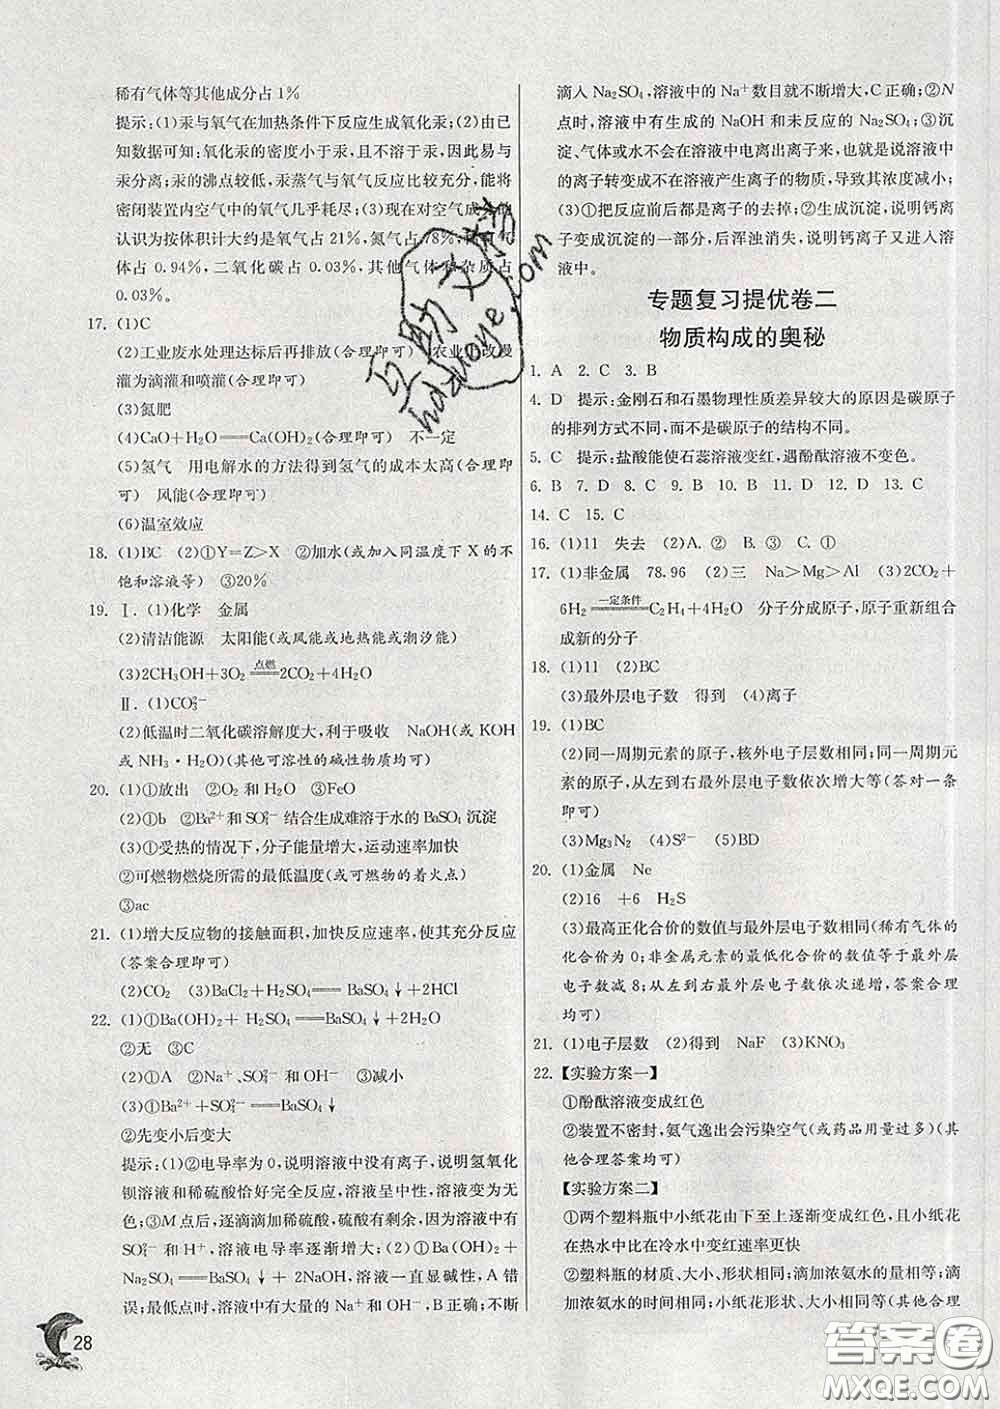 稀有气体等其他成分占1%
提示:(1)汞与氧气在加热条件下反应生成氧化汞;(2)由已
知数据可知:氧化汞的密度小于汞,且不溶于汞,因此易与
汞分离;汞的沸点较低,汞蒸气与氧气反应比较充分,能将
密闭装置内空气中的氧气几乎耗尽;(3)现在对空气成分的
认识为按体积计大约是氧气占21%,氮气占78%,
体占0.94%,二氧化碳占0.03%,其他气体和杂质占
0.03%。
17. (1)C
(2)工业废水处理达标后再排放(合理即可) 农业 改漫
灌为滴灌和喷灌(合理即可)
(3)氮肥
(4)CaO+H₂O══Ca(OH)₂(合理即可) 不一定
(5)氢气 用电解水的方法得到氢气的成本太高(合理即
可) 风能(合理即可)
(6)温室效应
18. (1)BC (2)①Y=Z>X ②加水(或加入同温度下X的不
饱和溶液等) ③20%
19. Ⅰ. (1)化学 金属
(2)清洁能源 太阳能(或风能或地热能或潮汐能)
(3)2CH₃OH+3O₂ 点燃══ 2CO₂+4H₂O
Ⅱ. (1)CO₃²⁻
(2)低温时二氧化碳溶解度大,利于吸收 NaOH(或KOH
或NH₃·H₂O)(其他可溶性的碱性物质均可)
20. (1)①放出 ②O₂和H₂O ③FeO
(2)①b ②Ba²⁺和SO₄²⁻结合生成难溶于水的BaSO₄沉淀
(3)①受热的情况下,分子能量增大,运动速率加快
②可燃物燃烧所需的最低温度(或可燃物的着火点)
③ac
21. (1)增大反应物的接触面积,加快反应速率,使其充分反应
(答案合理即可)
(2)CO₂ (3)BaCl₂+H₂SO₄══BaSO₄↓+2HCl
22. (1)①Ba(OH)₂+H₂SO₄══BaSO₄↓+2H₂O
②无 ③C
(2)①A ②Na⁺、SO₄²⁻和OH⁻ ③减小
(3)①Ba²⁺+SO₄²⁻══BaSO₄↓
②先变小后变大
提示:(1)②电导率为0,说明溶液中没有离子,说明氢氧化
钡溶液和稀硫酸恰好完全反应,溶液呈中性,石蕊变为无
色;③M点后,逐滴滴加稀硫酸,硫酸有剩余,因为溶液中有
SO₄²⁻和H⁺,溶液电导率逐渐增大;(2)Ba(OH)₂+
Na₂SO₄══BaSO₄↓+2NaOH,溶液一直显碱性,A错
误;最低点时,溶液中有大量的Na⁺和OH⁻,B正确;不断
28
滴入Na₂SO₄,溶液中的Na⁺数目就不断增大,C正确;②N
点时,溶液中有生成的NaOH和未反应的Na₂SO₄;③沉
淀、气体或水不会在溶液中电离出离子来,也就是说溶液中
的离子转变成不在溶液产生离子的物质,导致其浓度减小;
(3)①把反应前后都是离子的去掉;②生成沉淀,说明钙离
子变成沉淀的一部分,后浑浊消失,说明钙离子又进入溶
液中。
专题复习提优卷二
物质构成的奥秘
1. A 2. C 3. B
4. D 提示:金刚石和石墨物理性质差异较大的原因是碳原子
的排列方式不同,而不是碳原子的结构不同。
5. C 提示:盐酸能使石蕊溶液变红,遇酚酞溶液不变色。
6. B 7. D 8. C 9. B 10. B 11. D 12. D 13. C
14. C 15. C
16. (1)11 失去 (2)A. ② B. ③ C. ①
17. (1)非金属 78.96 (2)三 Na>Mg>Al (3)2CO₂+
6H₂ 一定条件══ C₂H₄+4H₂O 分子分成原子,原子重新组合
成新的分子
18. (1)11 (2)BC
(3)最外层电子数 得到 (4)离子
19. (1)BC
(2)同一周期元素的原子,核外电子层数相同;同一周期元
素的原子,从左到右最外层电子数依次增大等(答对一条
即可)
(3)Mg₃N₂ (4)S²⁻ (5)BD
20. (1)金属 Ne
(2)16 +6 H₂S
(3)最高正化合价的数值与最外层电子数相同(稀有气体的
化合价为0;非金属元素的最低化合价的数值等于最外层
电子数减8;从左到右最外层电子数依次递增,答案合理均
可)
21. (1)电子层数 (2)得到 NaF (3)KNO₃
22. 【实验方案一】
①酚酞溶液变成红色
②装置不密封,氨气逸出会污染空气(或药品用量过多)(其
他合理答案均可)
【实验方案二】
①两个塑料瓶中小纸花由下至上逐渐变成红色,且小纸花
在热水中比在冷水中变红速率更快
②塑料瓶的材质、大小、形状相同;滴加浓氨水的量相等;滴
加浓氨水的时间相同;小纸花形状、大小相同(合理答案
互助文档
huzuoye.com
答案圈
MXQE.COM